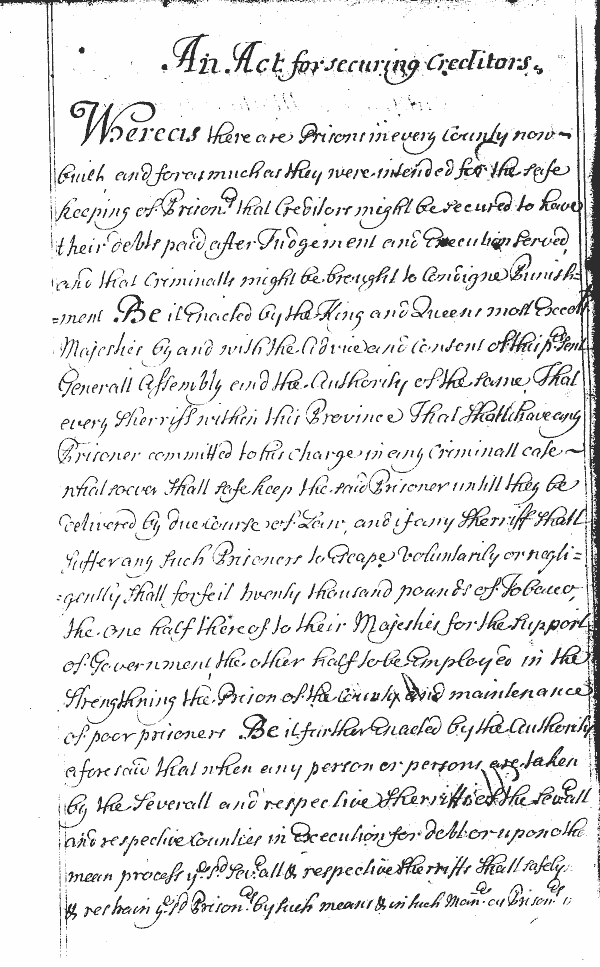 An Act for securing Creditors.
Whereas there are Prisons in every County now
built and forasmuch as they were intended for the safe
keeping of Prison.rs that Creditors might be secured to have
their debts paid after Judgement and Execution served,
and that Criminalls might be brought to Condigne Punish=
=ment Be it Enacted by the King and Queens most Excell.t
Majesties by and with the Advice and Consent of this p.esent
Generall Assembly and the Authority of the same That
every Sherriff within this Province That shall have any
Prisoner committed to his charge in any Criminall case
whatsoever shall safe keep the said Prisoner untill they be
delivered by due Course of Law, and if any Sherriff shall
suffer any such Prisoners to Escape Voluntarily or negli=
=gently shall forfeit twenty thousand pounds of Tobacco,
the one half thereof to their Majesties for the support
of Government, the other half to be Employed in the
strengthning the Prison of the County and maintenance
of poor prisoners Be it further Enacted by the Authority
aforesaid that when any person or persons are taken
by the Severall and respective Sherriffs of the Sev.all
and respective Counties in Execution for debt or upon the
mean process y.e s.d Sev.all & respective Sherriffs shall safely
& restrain y.e s.d Prison.rs by such means & in such Man.er as Prison.rs